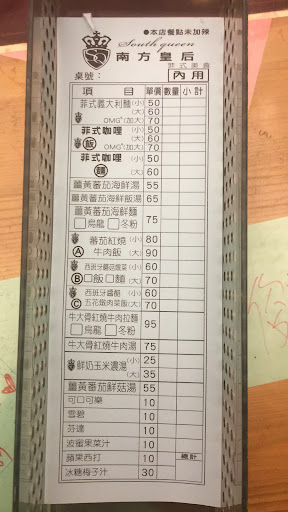 ●本店餐點未加辣
South queen
南方皇后
菲式美食
桌號： 內用
項目 單價 數量 小計
菲式義大利麵(小) 50
(大) 60
OMG⁺(加大) 70
菲式咖哩(小) 50
飯 (大) 60
OMG⁺(加大) 70
菲式咖哩(小) 50
麵 (大) 60
薑黃蕃茄海鮮湯 55
薑黃蕃茄海鮮飯湯 65
薑黃蕃茄海鮮麵 75
□烏龍 □冬粉
蕃茄紅燒(小) 80
Ⓐ 牛肉飯(大) 90
西班牙蘑菇燉菜(小) 60
Ⓑ□飯□麵(大) 70
西班牙醬醋(小) 60
Ⓒ 五花燉肉菜飯(大) 70
牛大骨紅燒牛肉拉麵 95
□烏龍 □冬粉
牛大骨紅燒牛肉湯 75
鮮奶玉米濃湯(小) 25
(大) 35
薑黃蕃茄鮮菇湯 55
可口可樂 10
雪碧 10
芬達 10
波蜜果菜汁 10
蘋果西打 10 總計
冰糖梅子汁 30